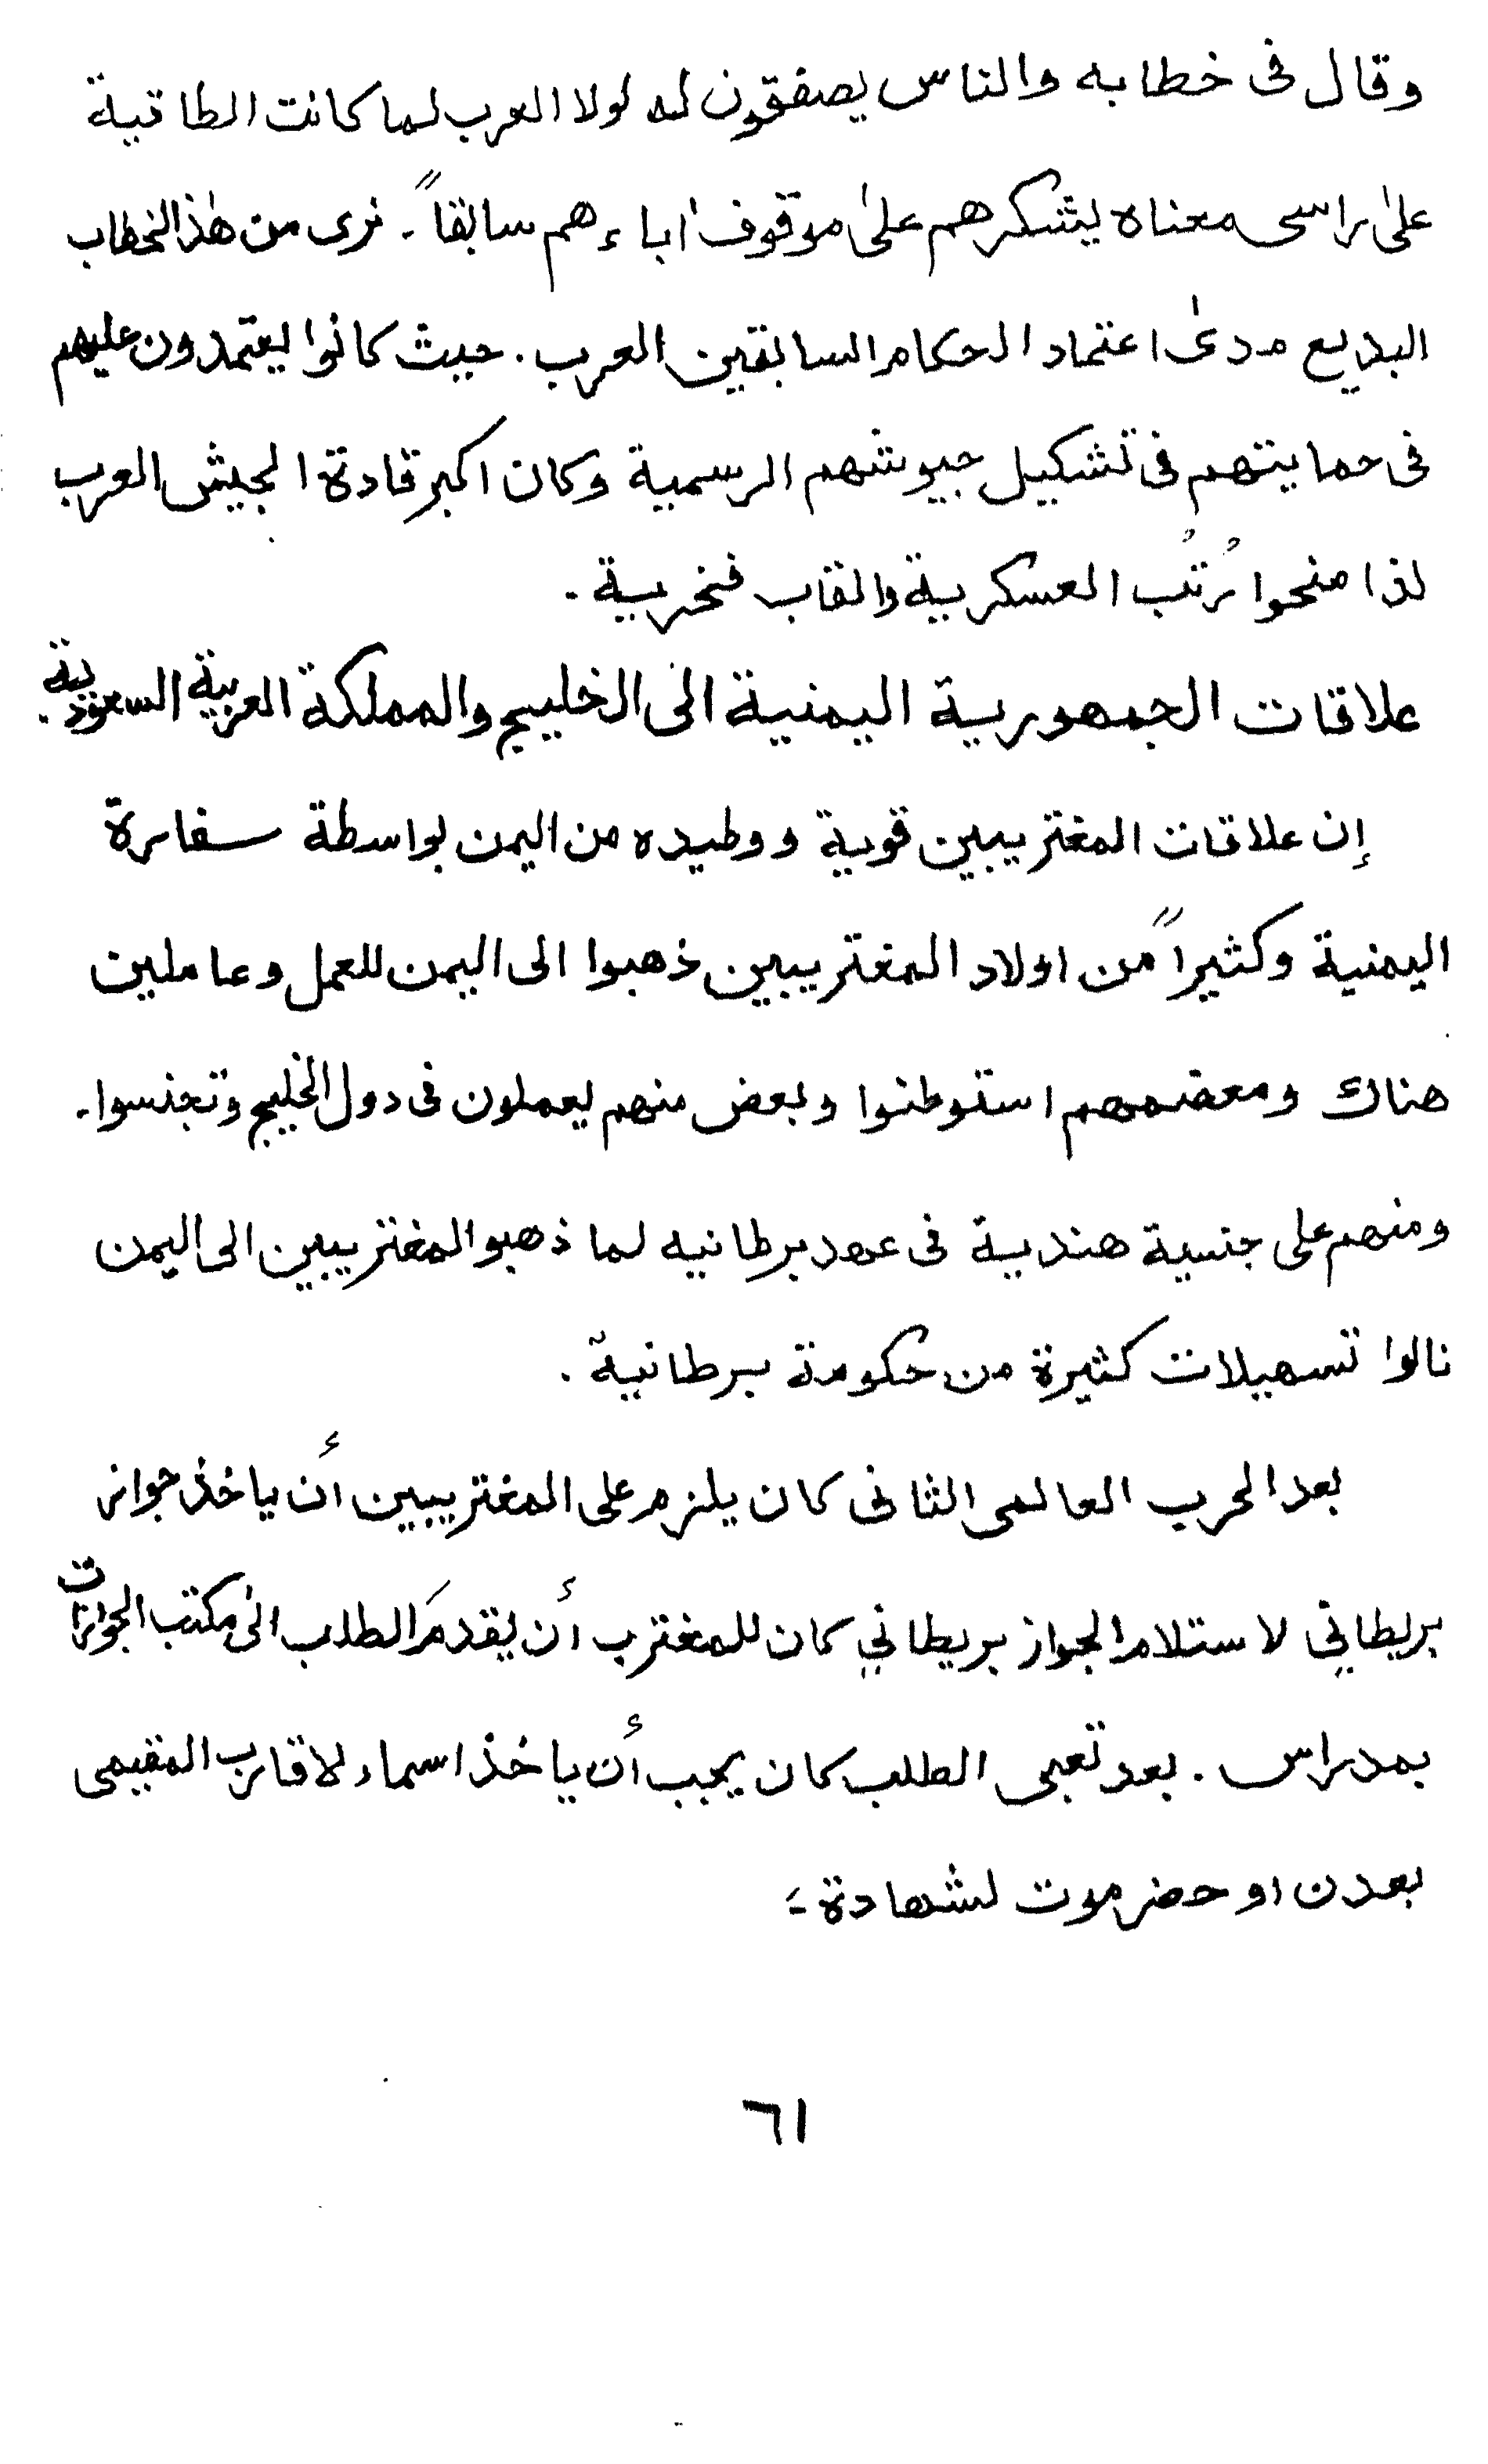 وقال فى خطابه والناس يصفقون له لولا العرب لما كانت الطاقية
على راسى معناه يشكرهم على موقوف اباءهم سابقاً. نرى من هذالخطاب
البديع مدى اعتماد الحكام السابقين العرب. حيث كانوا يعتمدون عليهم
فى حمايتهم فى تشكيل جيوشهم الرسمية وكان اكبر قادة الجيش العرب
لذا منحوا رُتُب العسكرية والقاب فخريية.
علاقات الجمهورية اليمنية الى الخليج والمملكة العربية السعودية.
إن علاقات المغتريبين قوية ووطيده من اليمن بواسطة سفارة
اليمنية وكثيراً من اولاد المغتريبين ذهبوا الى اليمن للعمل وعاملين
هناك ومعضمهم استوطنوا وبعض منهم يعملون فى دول الخليج وتجنسوا.
ومنهم على جنسية هندية فى عهد برطانيه لما ذهبو المغتريبين الى اليمن
نالوا تسهيلات كثيرة من حكومة برطانية.
بعد الحرب العالمى الثانى كان يلزم على المغتريبين أن ياخذ جواز
بريطاني لاستلام الجواز بريطاني كان للمغترب أن يقدمَ الطلب الى مكتب الجوازات
بمدراس. بعد تعبى الطلب كان يجب أن ياخذ اسماء لاقارب المقيمى
بعدن او حضرموت لشهادة -
٦١